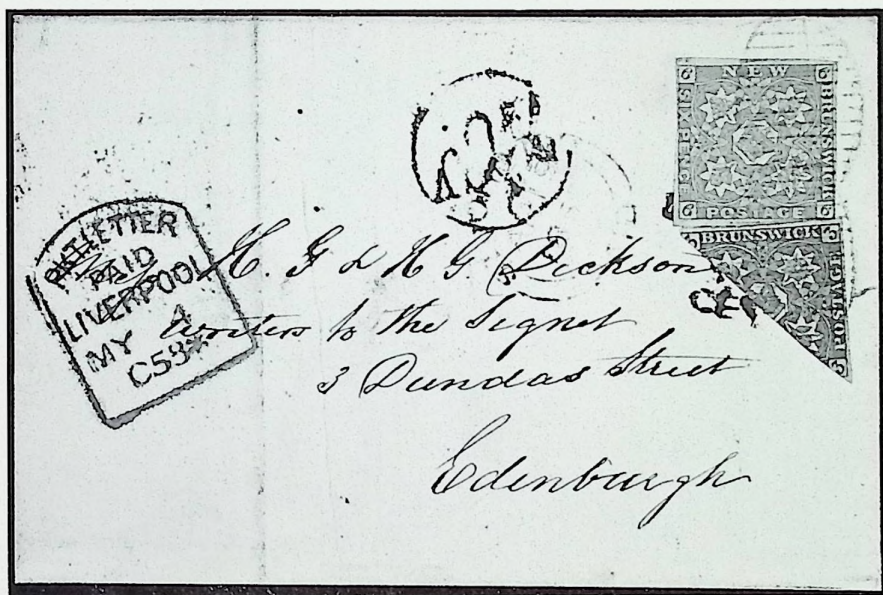 6 NEW 6
BRUNSWICK
POSTAGE
6 6
BRUNSWICK
POSTAGE
3
PKT LETTER
PAID
LIVERPOOL
MY 4
C53
H. G & H G Dickson
Writers to the Signet
3 Dundas Street
Edinburgh